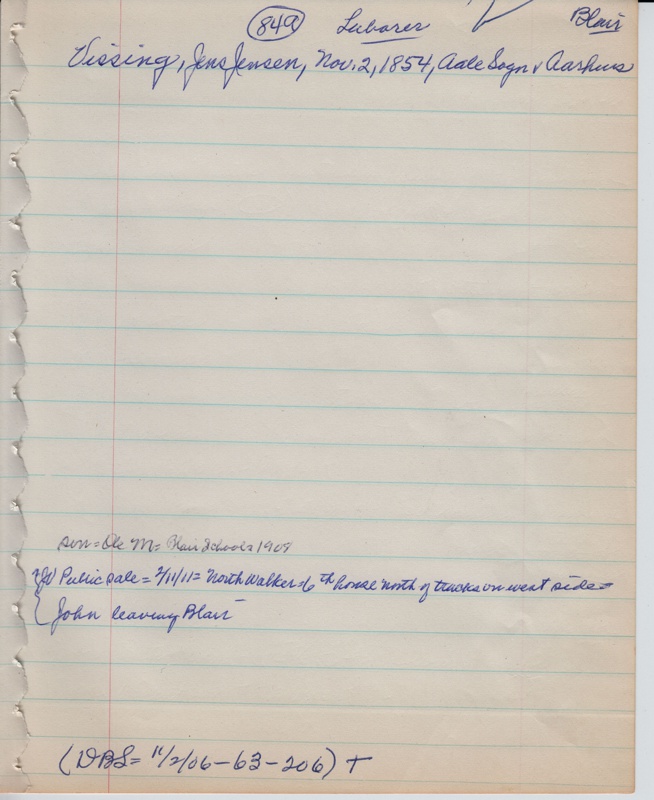 849 Laborer Blair
Vissing, Jens Jensen, Nov. 2, 1854, Aale Sogn v Aarhus
son = Ole M = Blair Schools 1909
Public sale = 2/11/11 = North Walker = 6th house north of tracks on west side =
John leaving Blair
(DBS = 11/2/06 - 63 - 206) +